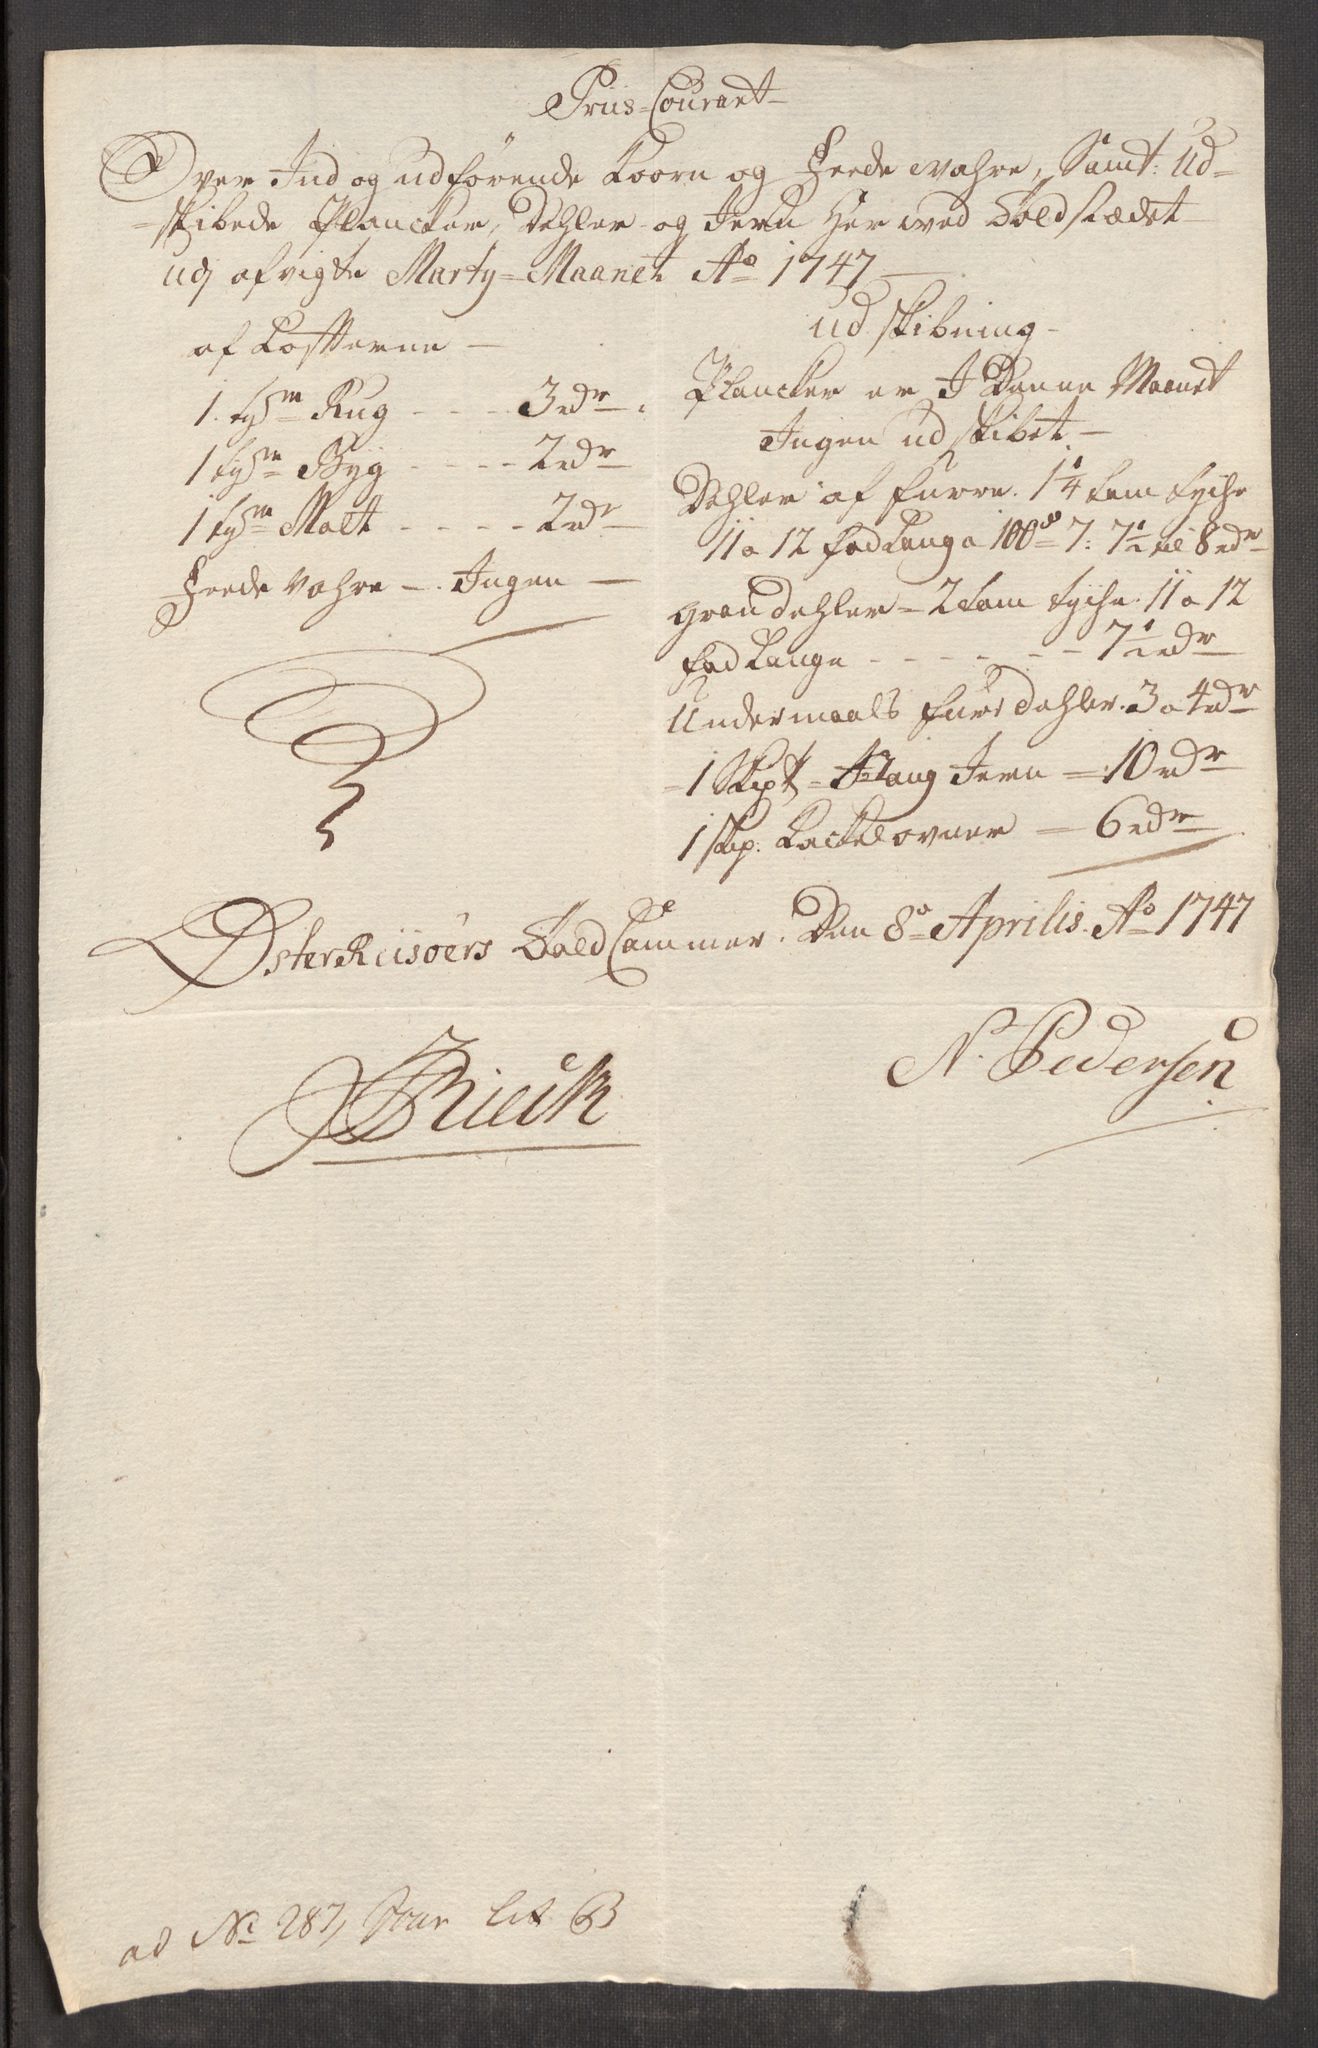 Priis-Courant
Over Ind og udförende Koorn og Feede wahre, Samt: Ud-
-skibede Plancker, Dehler og Jern her wed Toldstædet
udj afvigte Marty-Maanet Ao 1747
af Kosterne
1 Tønde Rug - - - - 3 rdr
1 Tønde Byg - - - - 2 rdr
1 Tønde Malt - - - - 2 rdr
Feede Vahre - Ingen
Udskibning
Plancker er I Denne Maanet
Ingen udskibet
Dehler af Furre 1 1/4 tom tyche
11 a 12 fod lang a 100de 7: 7 1/2 til 8 rdr
Grandehler - 2 tom tyche 11 a 12
fod lange - - - - - - 7 1/2 rdr
Undermaals furedehler 3 a 4 rdr
1 Skp Stang Jern = 10 rdr
1 Skp. Kackelovner = 6 rdr
ØsterRiisöers Told Cammer. Den 8de Aprilis Ao 1747
Rieck
N. Pedersen
ad No 287, Lit B